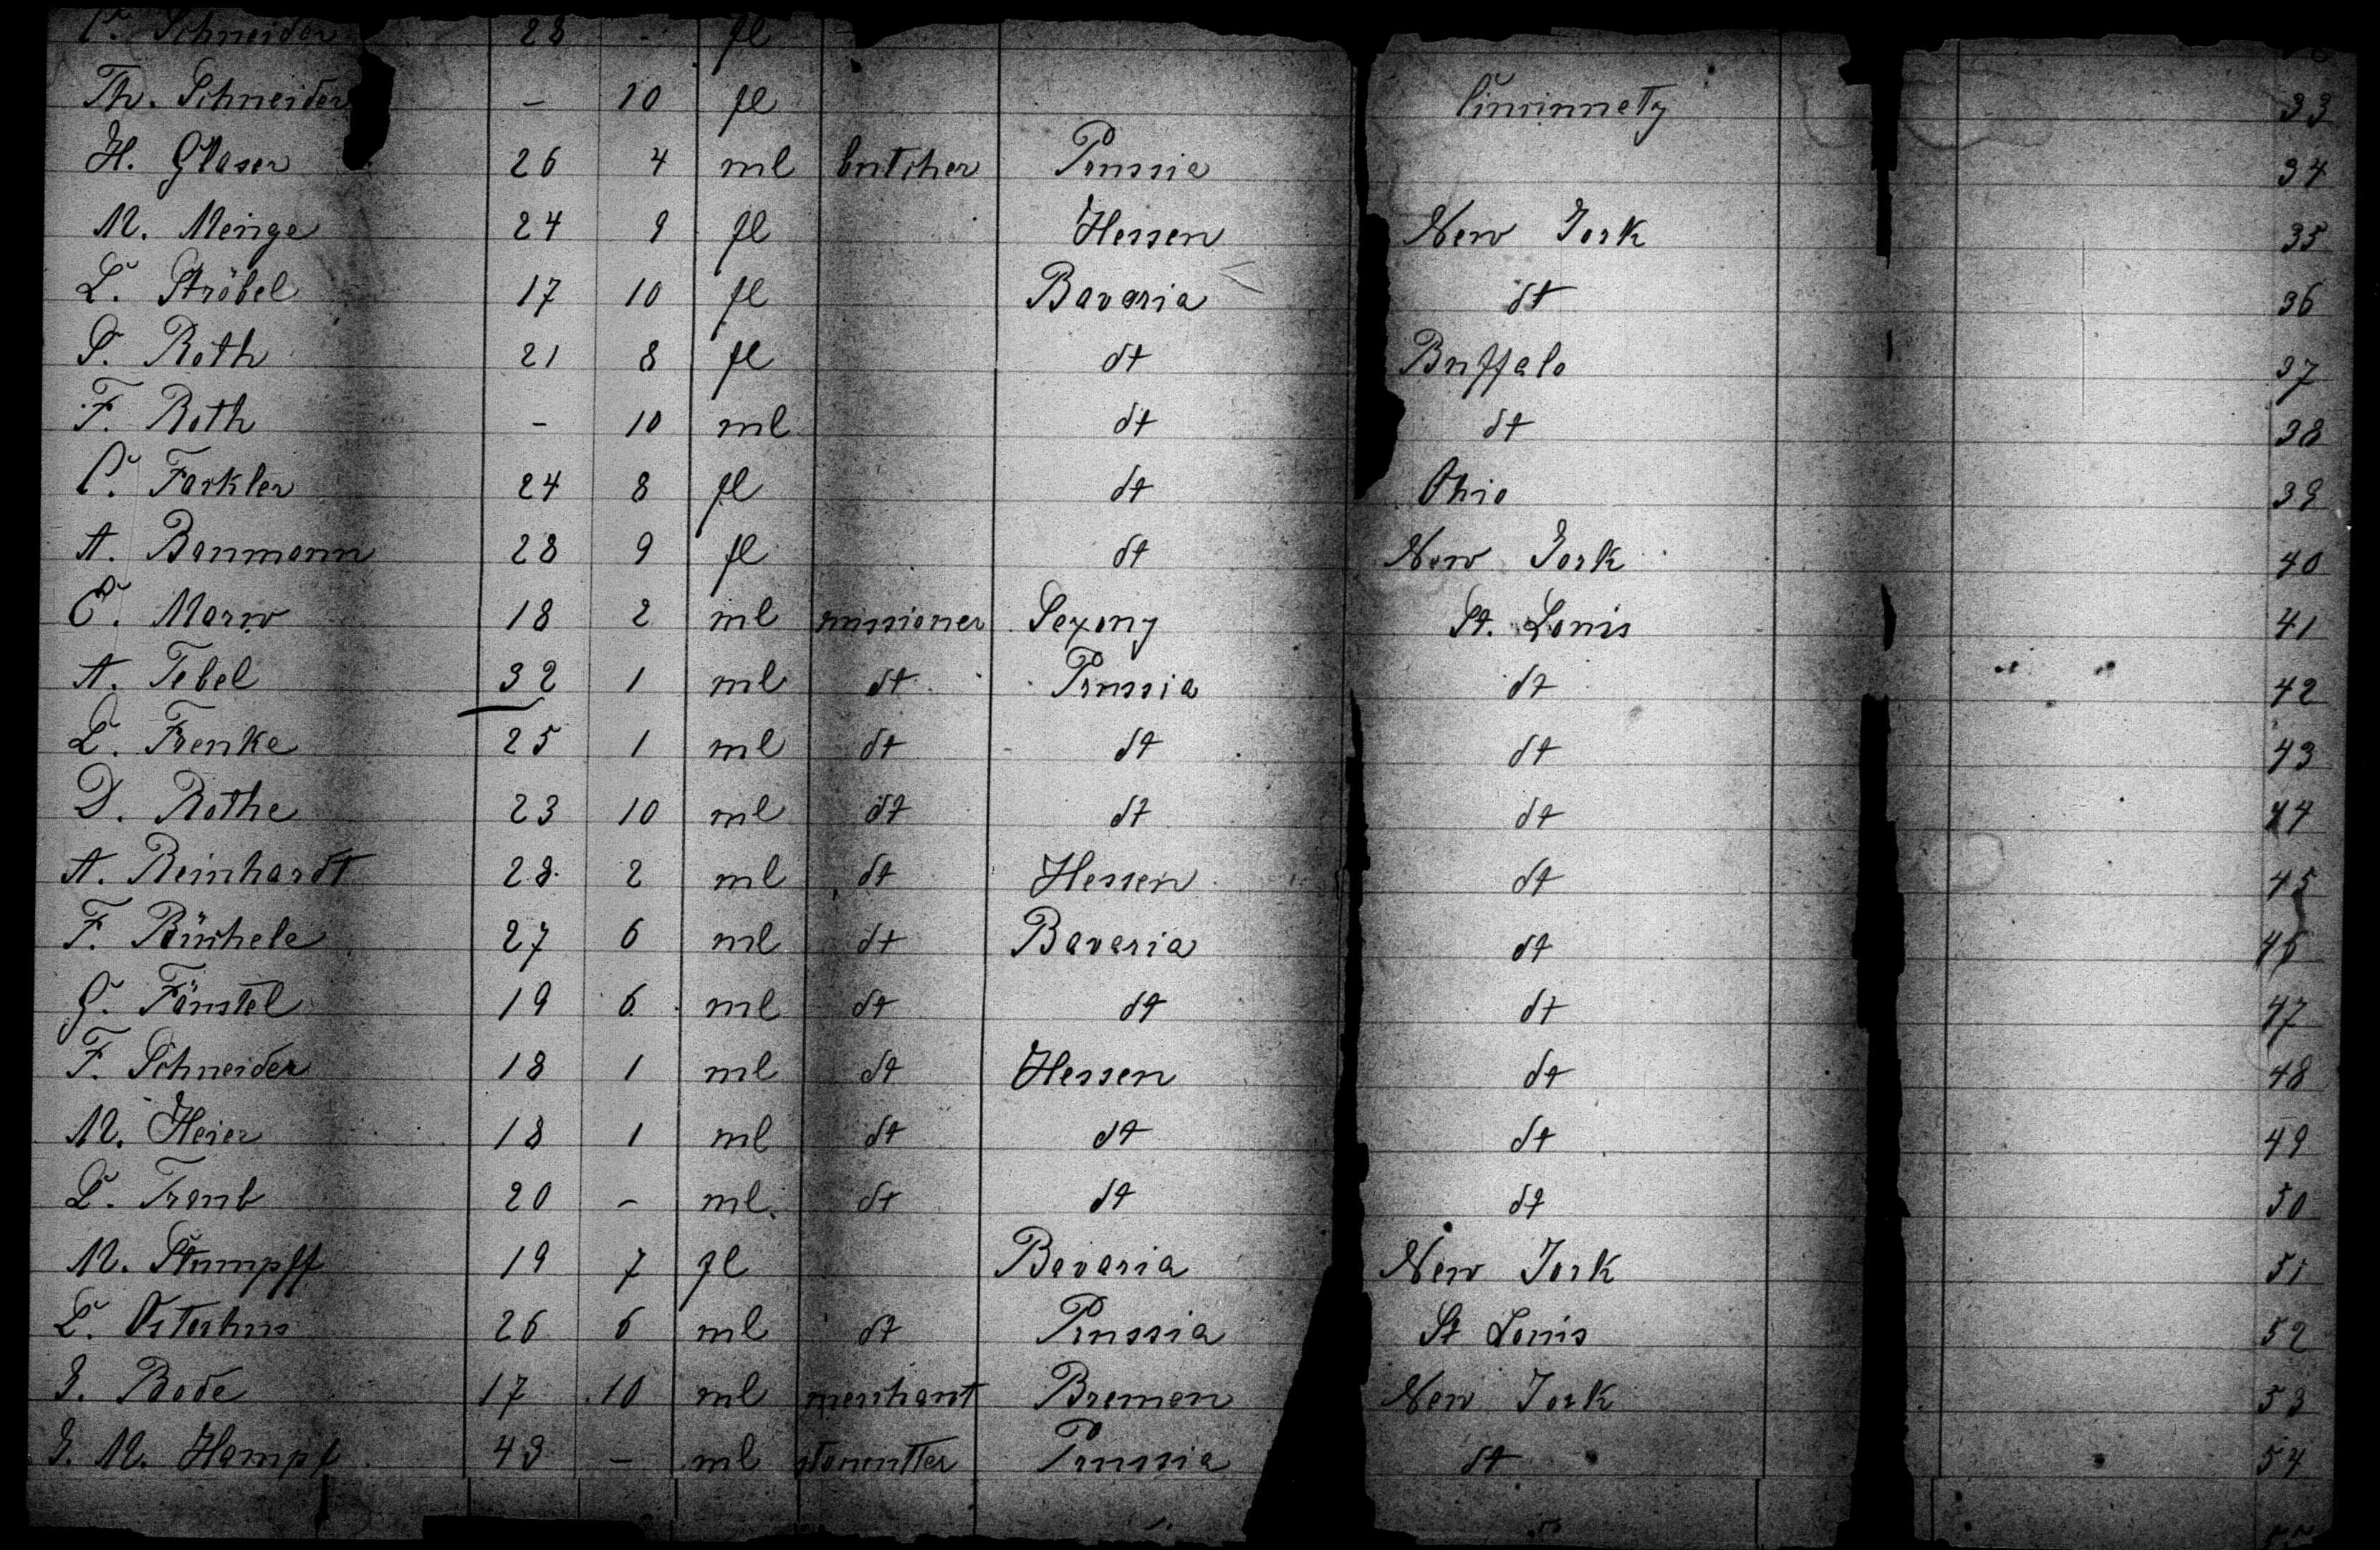 C. Schneider 28 - fl
Th. Schneider - 10 fl Cincinnety 33
H. Glaser 26 4 ml butcher Prussia 34
M. Menge 24 9 fl Hessen New York 35
L. Ströbel 17 10 fl Bavaria dt 36
S. Roth 21 8 fl dt Buffalo 37
F. Roth - 10 ml dt dt 38
C. Farkler 24 8 fl dt Ohio 39
A. Baumann 28 9 fl dt New York 40
E. Marw 18 2 ml missioner Sexony St. Louis 41
A. Tebel 32 1 ml dt Prussia dt 42
L. Frenke 25 1 ml dt dt dt 43
D. Rothe 23 10 ml dt dt dt 44
A. Reinhardt 28 2 ml dt Hessen dt 45
F. Büchele 27 6 ml dt Bavaria dt 46
G. Fänstel 19 6 ml dt dt dt 47
F. Schneider 18 1 ml dt Hessen dt 48
M. Heier 18 1 ml dt dt dt 49
L. Traub 20 - ml dt dt dt 50
M. Stumpff 19 7 fl Bavaria New York 51
L. Osterhus 26 6 ml dt Prussia St Louis 52
J. Bode 17 10 ml merchant Bremen New York 53
J. M. Hampf 43 - ml stonecutter Prussia dt 54